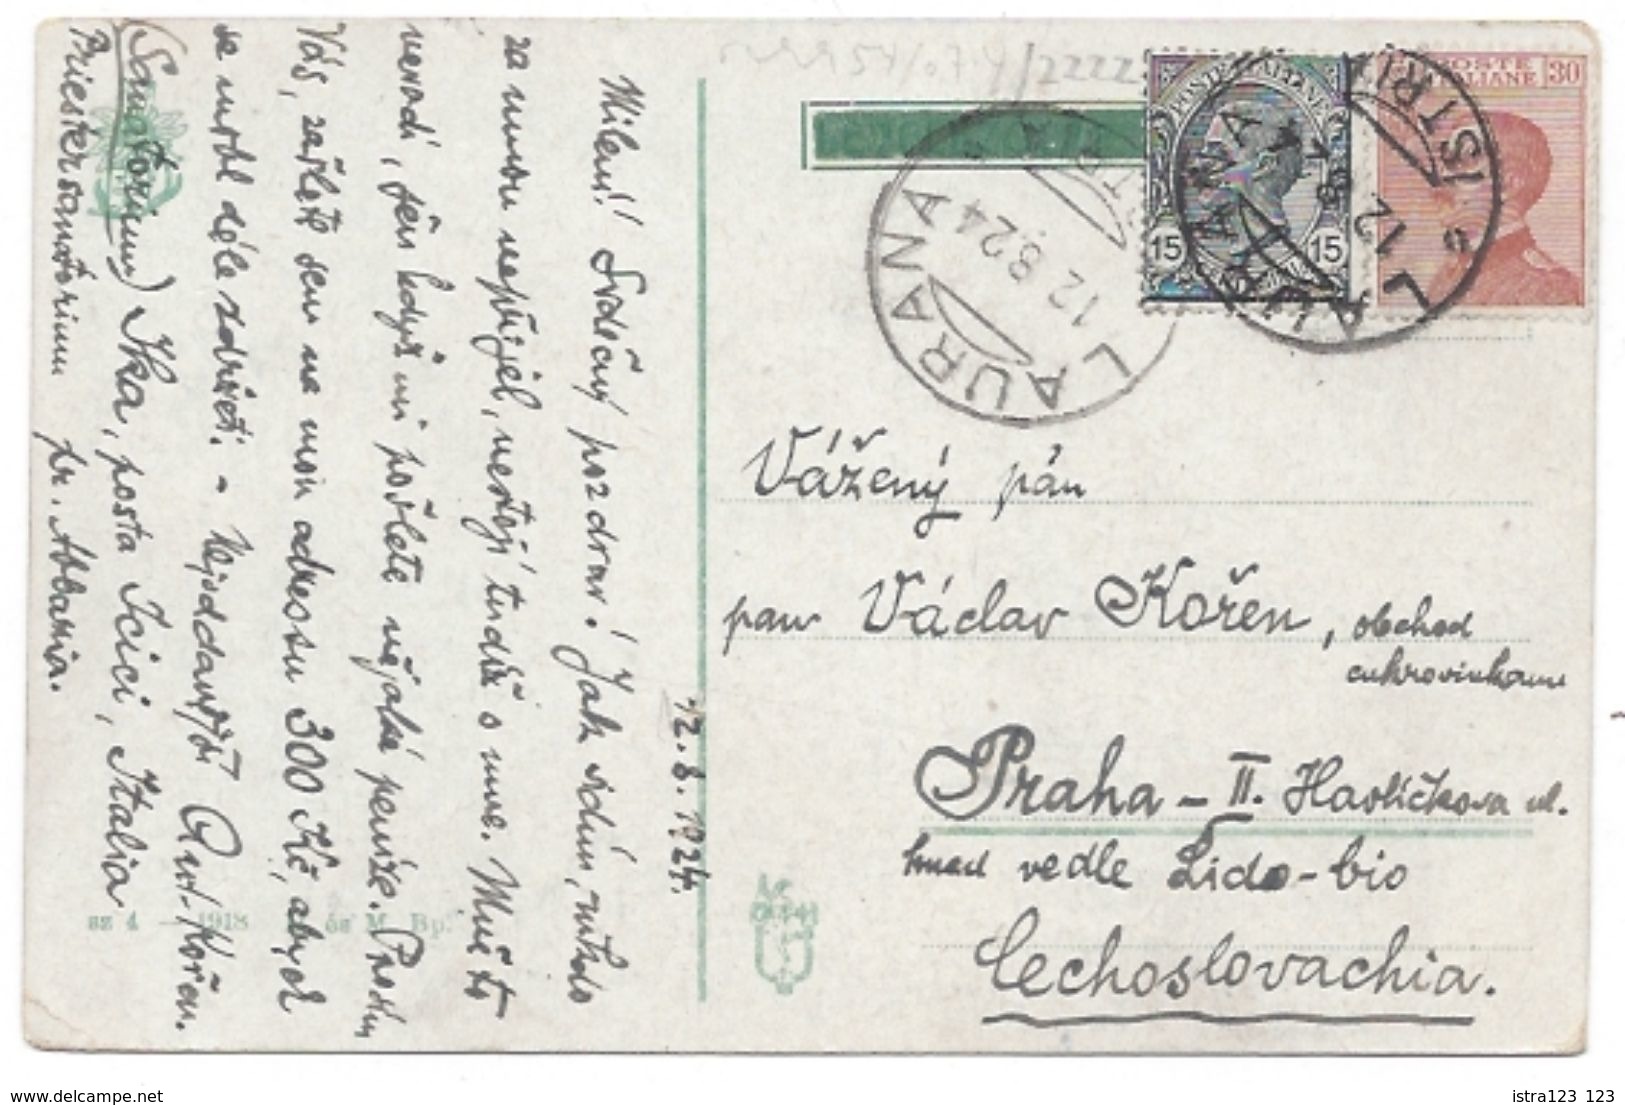 12. 8. 1924.
Milení! Srdečný pozdrav! Jak vidím, nikdo
za mnou nepřijel, nestojí tudíž o mne. Mně to
nevadí, jen když mi pošlete nějaké peníze. Prosím
Vás, zašlete sem na mou adresu 300 Kč, abych
se mohl déle zdržeti. - Nejoddanější Ant. Kořen.
(Sanatorium) Ika, posta Icici, Italia
Priestersanatorium pr. Abbazia.
sz 4 — 1918 és M. Bp.
LAURANA
12 8.24
ISTRIA
POSTE ITALIANE
15 15
POSTE
ITALIANE 30
LAURANA
12 8
ISTRIA
Vážený pán
pan Václav Kořen, obchod
cukrovinkami
Praha - II. Havlíčkova ul.
hned vedle Lido-bio
Čechoslovachia.
www.delcampe.net
istra123 123